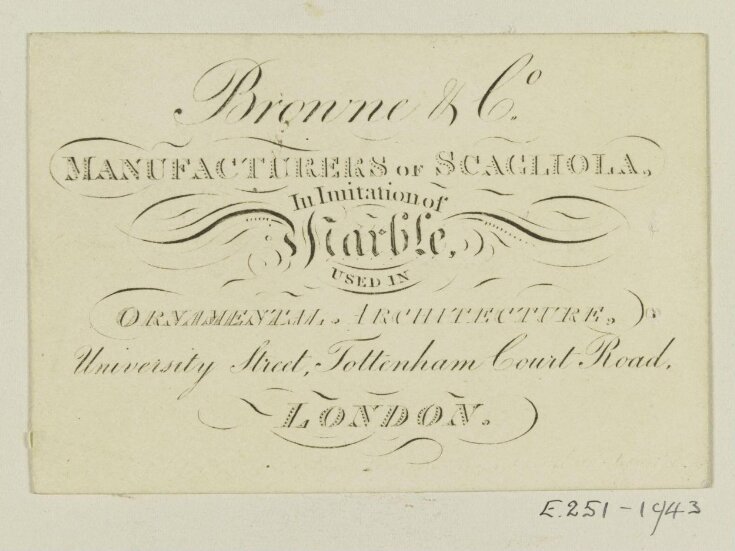 Browne & Co.
MANUFACTURERS OF SCAGLIOLA,
In Imitation of
Marble,
USED IN
ORNAMENTAL ARCHITECTURE,
University Street, Tottenham Court Road,
LONDON.
E.251-1943